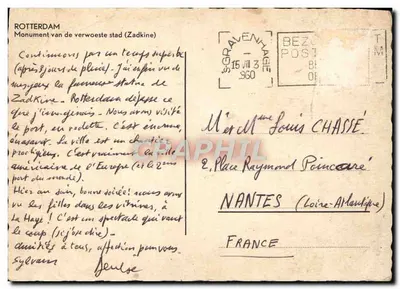 ROTTERDAM
Monument van de verwoeste stad (Zadkine)
Continuons par un temps superbe
(après jours de pluie). J'ai enfin vu de
mes yeux la fameuse statue de
Zadkine. Rotterdam dépasse ce
que j'imaginais. Nous avons visité
le port, en vedette. C'est énorme,
La ville est un chantier
prodigieux. C'est vraiment la ville
américaine de l'Europe (et le 2ème
port du monde).
Hier au soir, bonne soirée! nous avons
vu les filles dans les vitrines, à
La Haye! C'est un spectacle qui vaut
le coup (si j'ose dire).
amitiés à tous, affection pour vous.
Sylvans
Denise
'S-GRAVENHAGE
15 VII 3
1960
BEZ
POS
TM
Mr et Mme Louis CHASSÉ
2, Place Raymond Poincaré
NANTES (Loire-Atlantique)
FRANCE
CPRHTCL